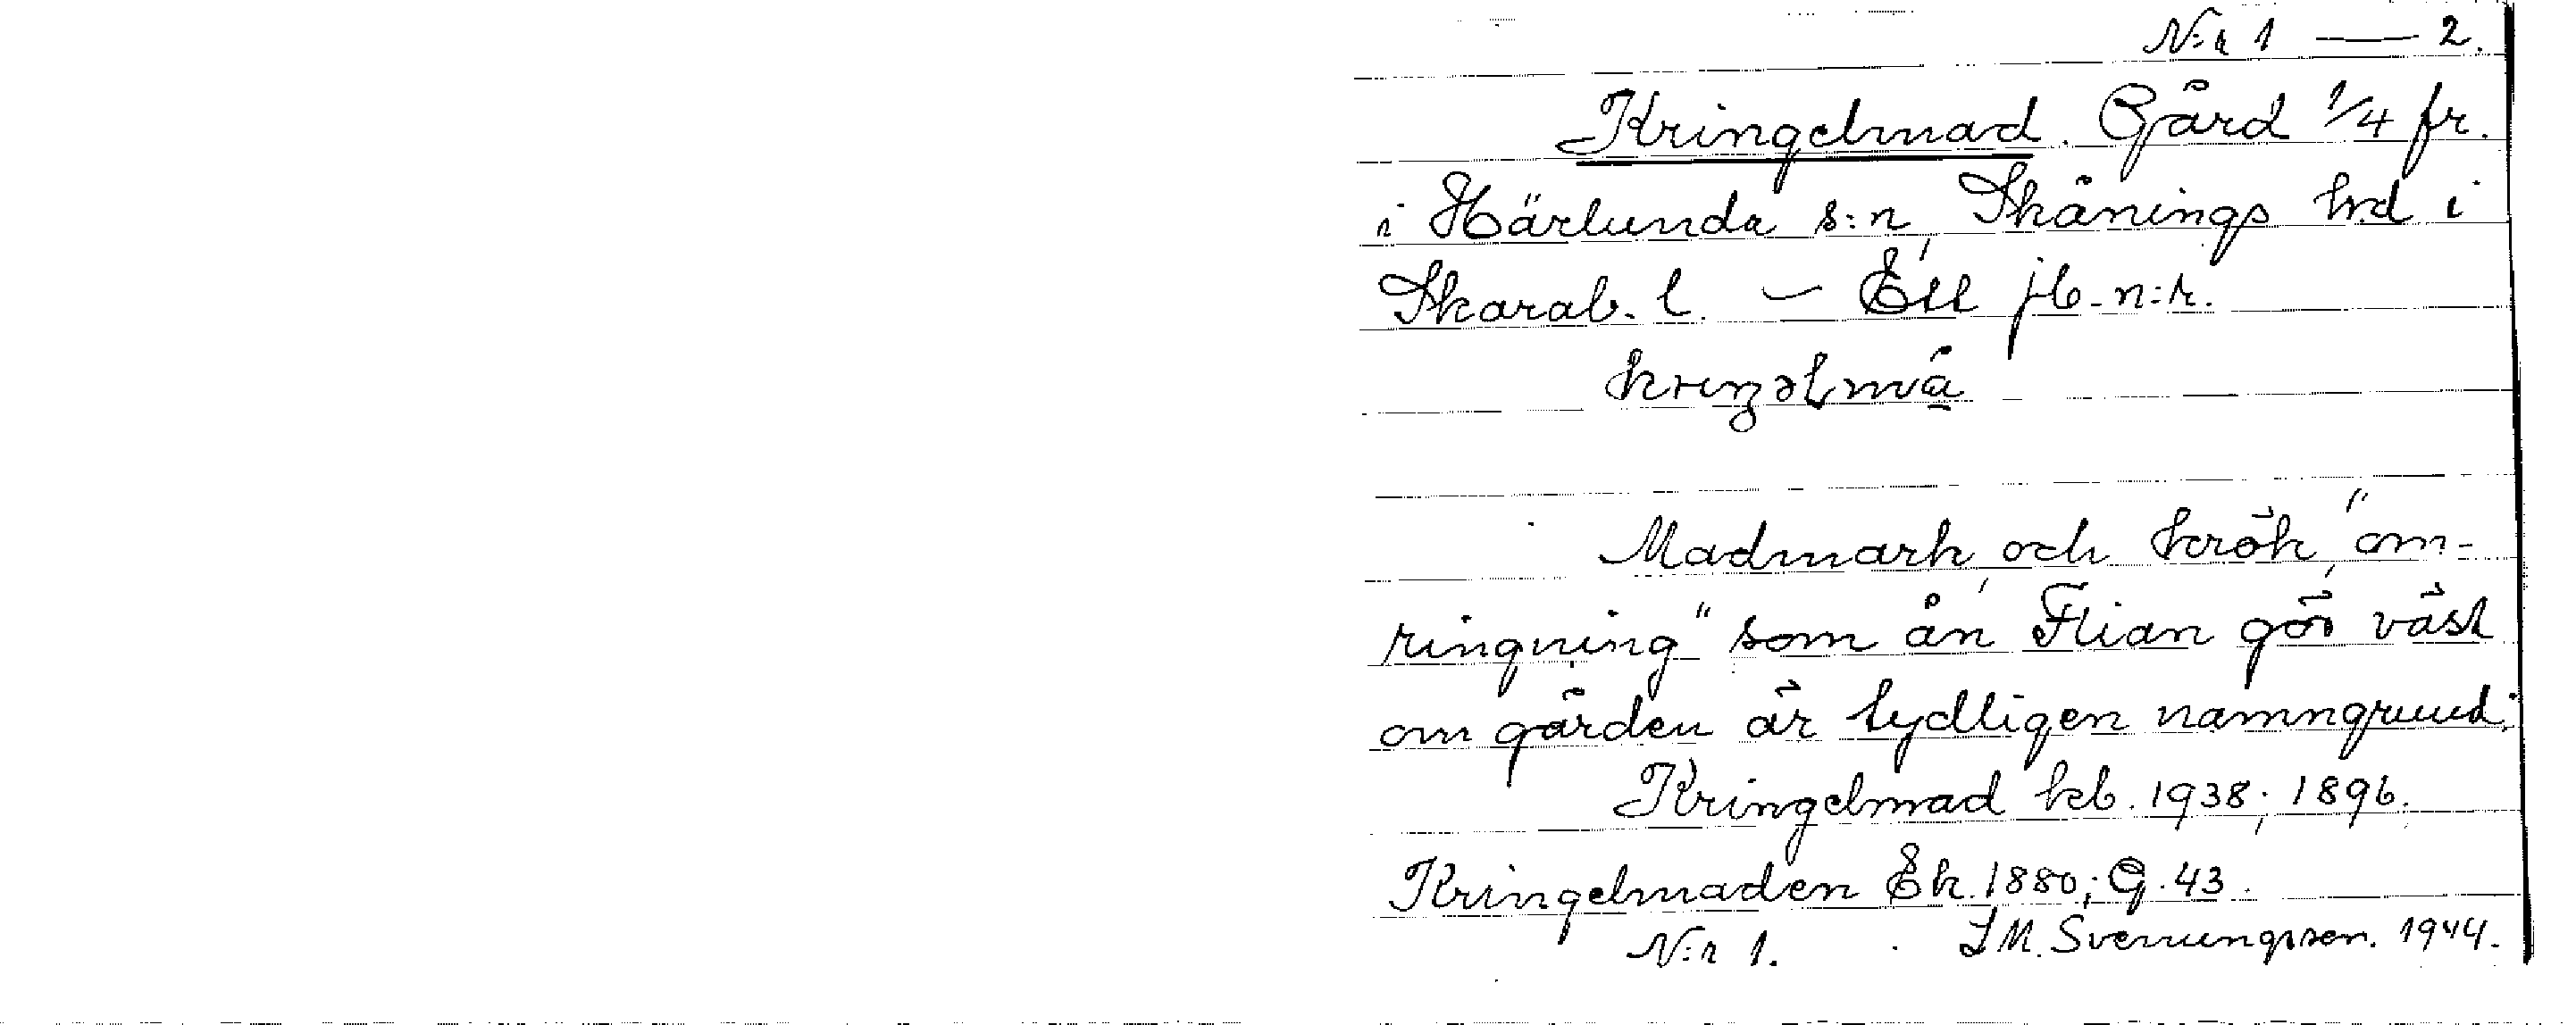 N:r 1 — 2.
Kringelmad. Gård 1/4 fr.
i Härlunda s:n, Skånings hd i
Skarab. l. – Ett jb-n:r.
kriŋəlmá̱
Madmark, och krök, "om-
ringning" som ån Flian gör väst
om gården är tydligen namngrund.
Kringelmad kb. 1938; 1896.
Kringelmaden Ek. 1880; G. 43.
N:r 1. I M. Sverrungsson. 1944.